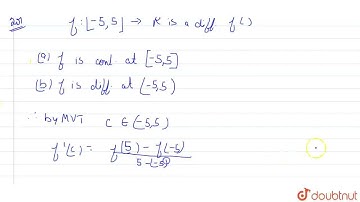 201 f : [-5,5] → R is a diff f()
(a) f is cont. at [-5,5]
(b) f is diff at (-5,5)
∴ by MVT c ∈ (-5,5)
f'(c) = f(5) - f(-5)
5-(-5)
doubtnut